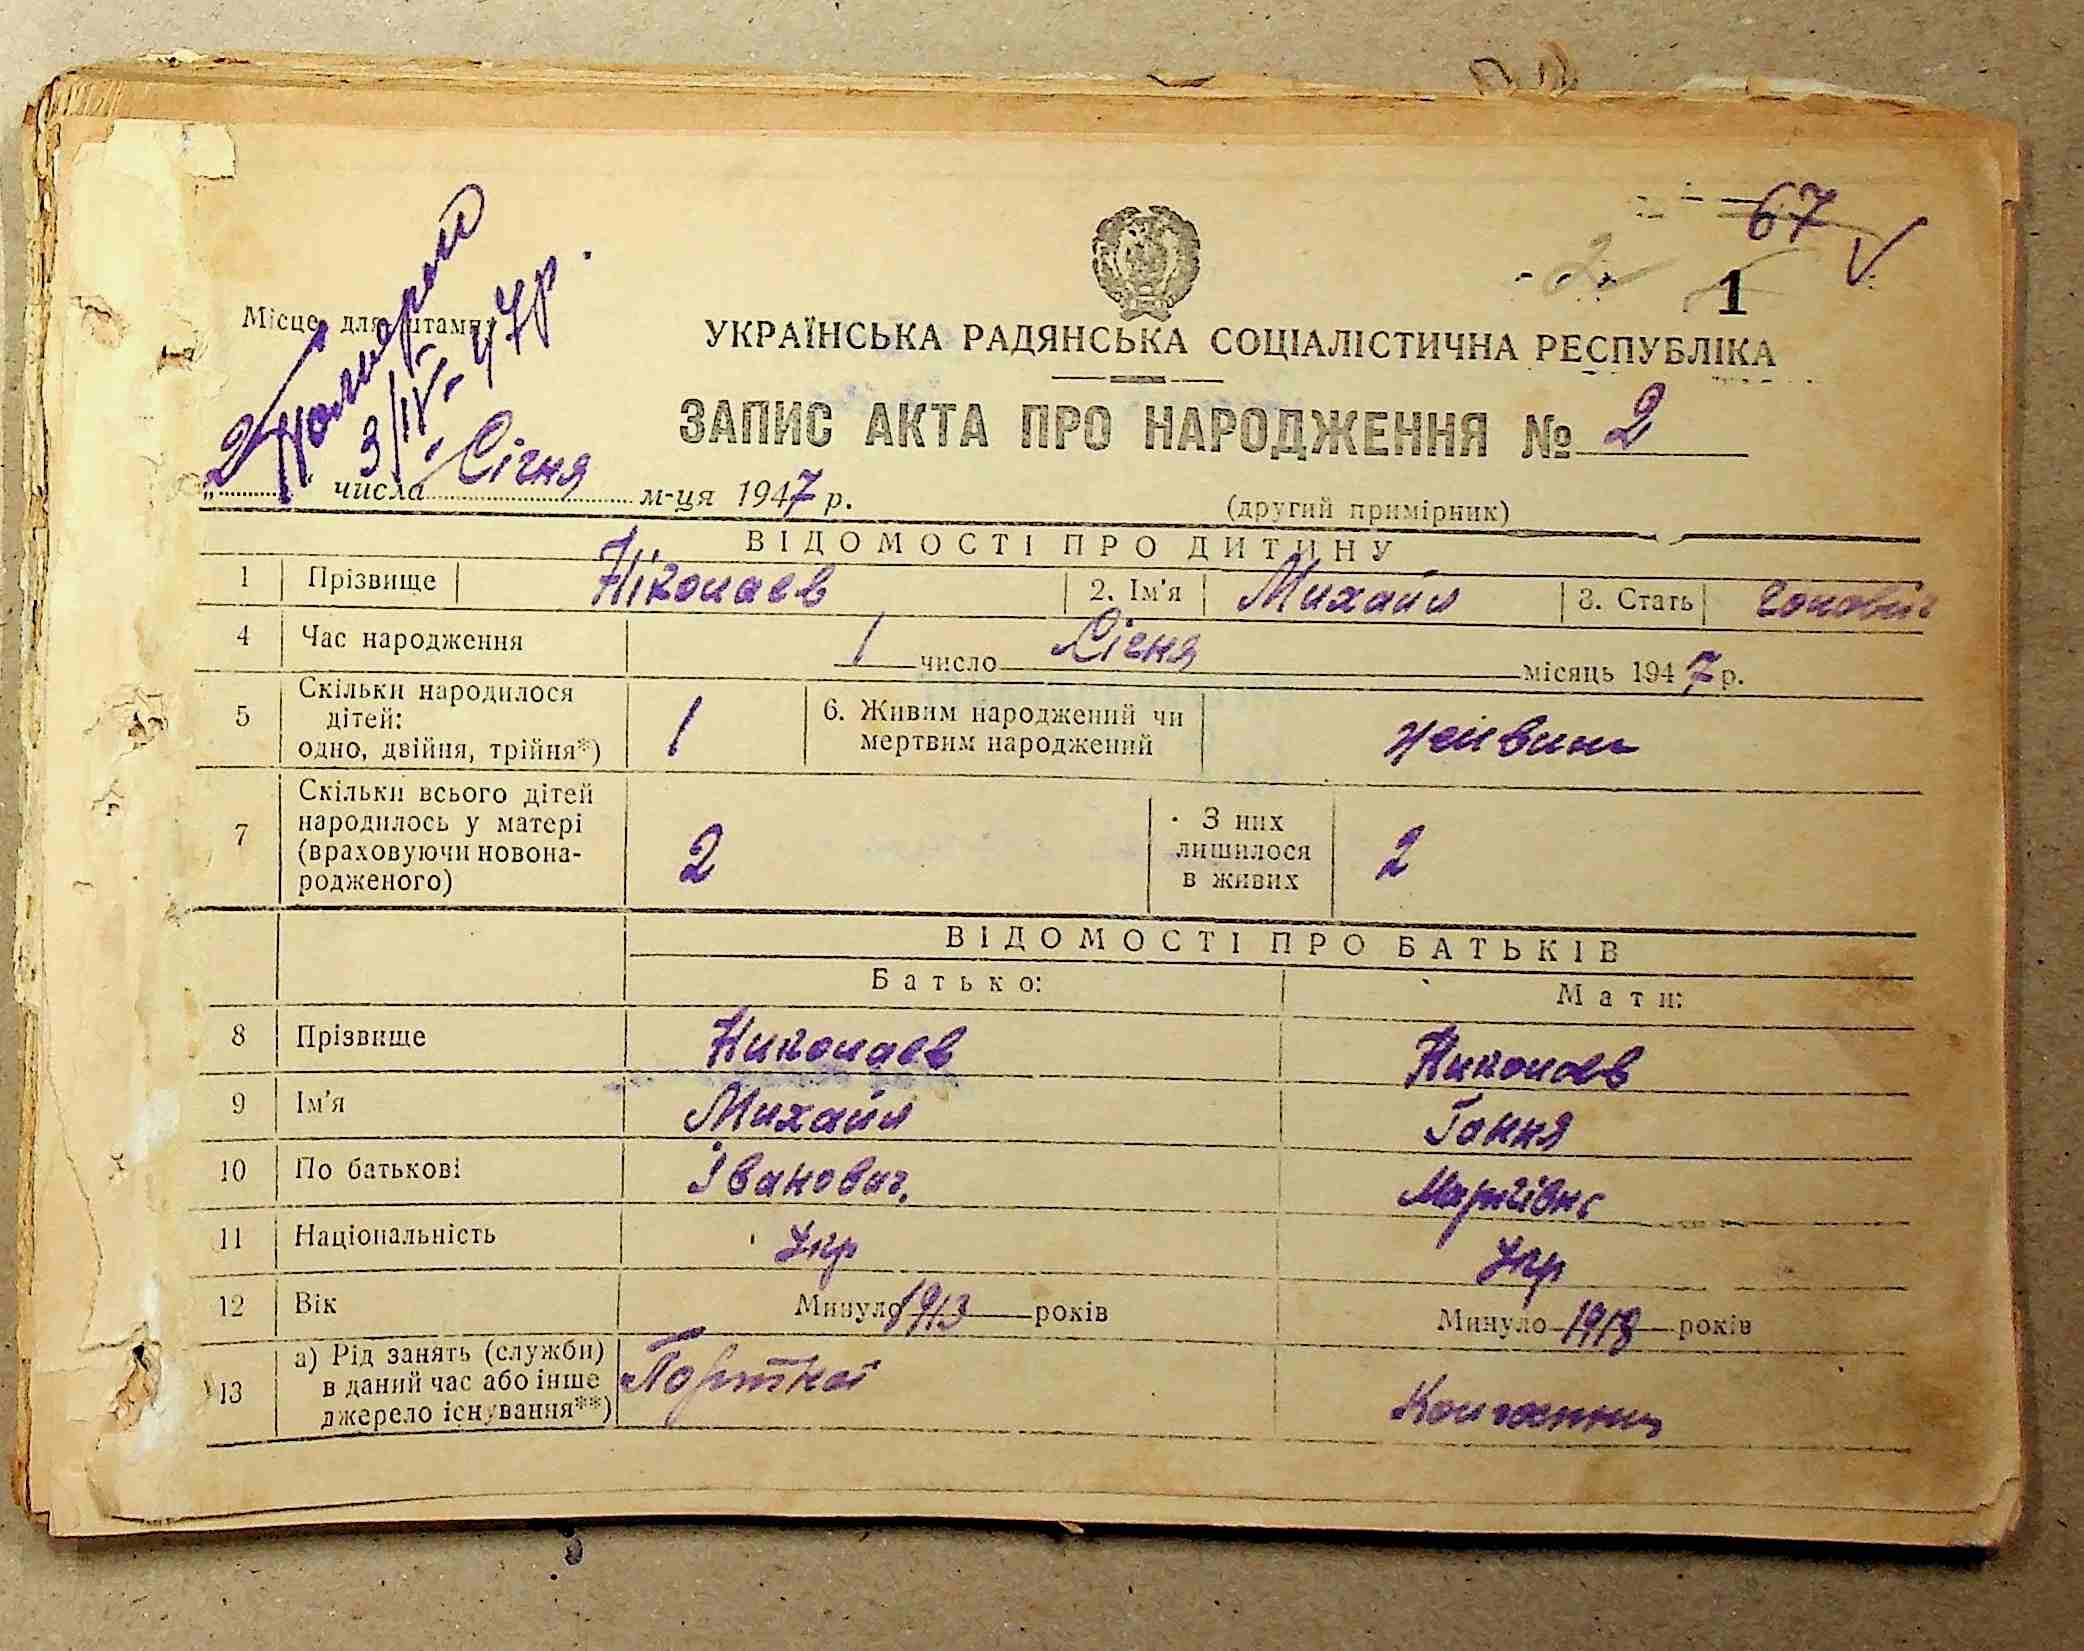 67
1
Місце для штампу
3/IV-47р.
УКРАЇНСЬКА РАДЯНСЬКА СОЦІАЛІСТИЧНА РЕСПУБЛІКА
ЗАПИС АКТА ПРО НАРОДЖЕННЯ № 2
„2" числа Січня м-ця 1947 р.
(другий примірник)
ВІДОМОСТІ ПРО ДИТИНУ
1 Прізвище Ніколаев 2. Ім'я Михайл 3. Стать
4 Час народження 1 число Січня місяць 1947 р.
5 Скільки народилося
дітей:
одно, двійня, трійня*) 1
6. Живим народжений чи
мертвим народжений
7 Скільки всього дітей
народилось у матері
(враховуючи новона-
родженого) 2
З них
лишилося
в живих 2
ВІДОМОСТІ ПРО БАТЬКІВ
Батько: Мати:
8 Прізвище Николаев Николаев
9 Ім'я Михайл Гання
10 По батькові Іванович
11 Національність Укр Укр
12 Вік Минуло 1913 років Минуло 1918 років
13 а) Рід занять (служби)
в даний час або інше
джерело існування**)